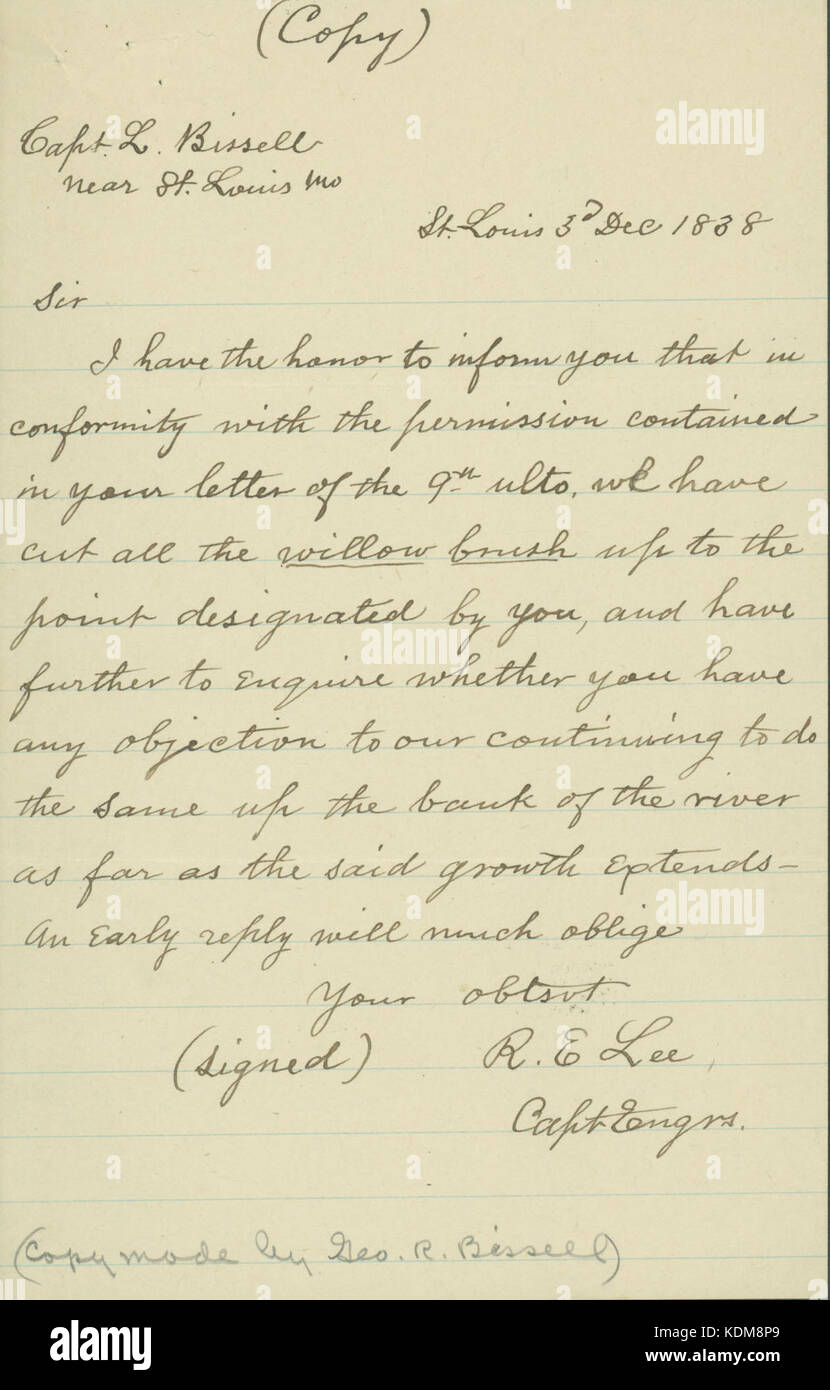 (Copy)
Capt. L. Bissell
near St. Louis Mo
St. Louis 3d Dec 1838
Sir
I have the honor to inform you that in
conformity with the permission contained
in your letter of the 9th ulto. we have
cut all the willow brush up to the
point designated by you, and have
further to enquire whether you have
any objection to our continuing to do
the same up the bank of the river
as far as the said growth extends—
An Early reply will much oblige
Your obtsvt
(signed) R. E Lee,
Capt Engrs.
(Copy made by Geo. R. Bissell)
alamy
Image ID: KDM8P9
www.alamy.com